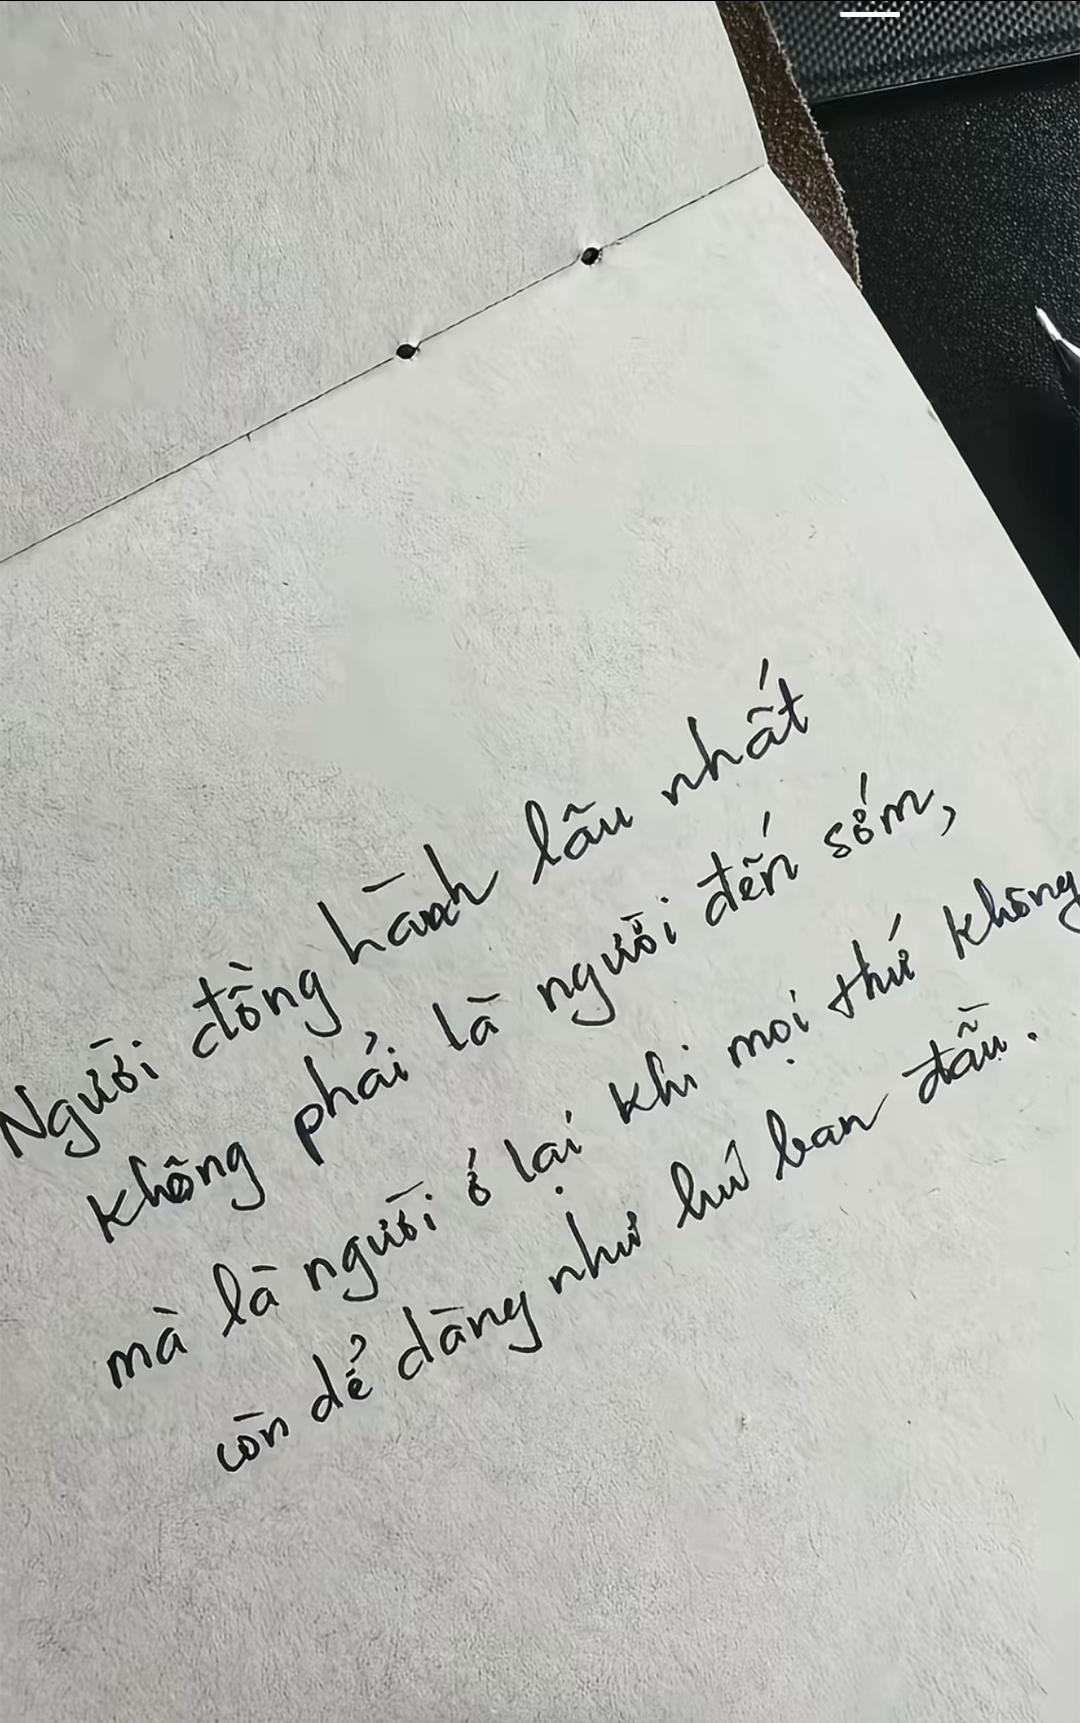 Người đồng hành lâu nhất
không phải là người đến sớm,
mà là người ở lại khi mọi thứ không
còn dễ dàng như lúc ban đầu.